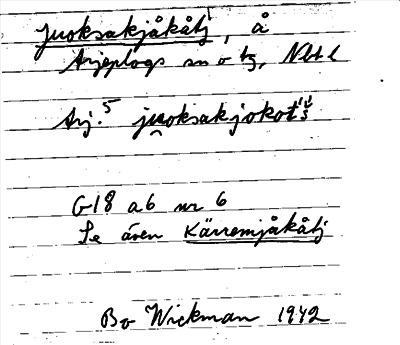 Juoksakjåkåtj, å
Arjeplogs sn o tg, Nbt l
Arj. 5 juoksakjokot'š
G18 a6 nr 6
Se även Kärremjåkåtj
Bo Wickman 1942